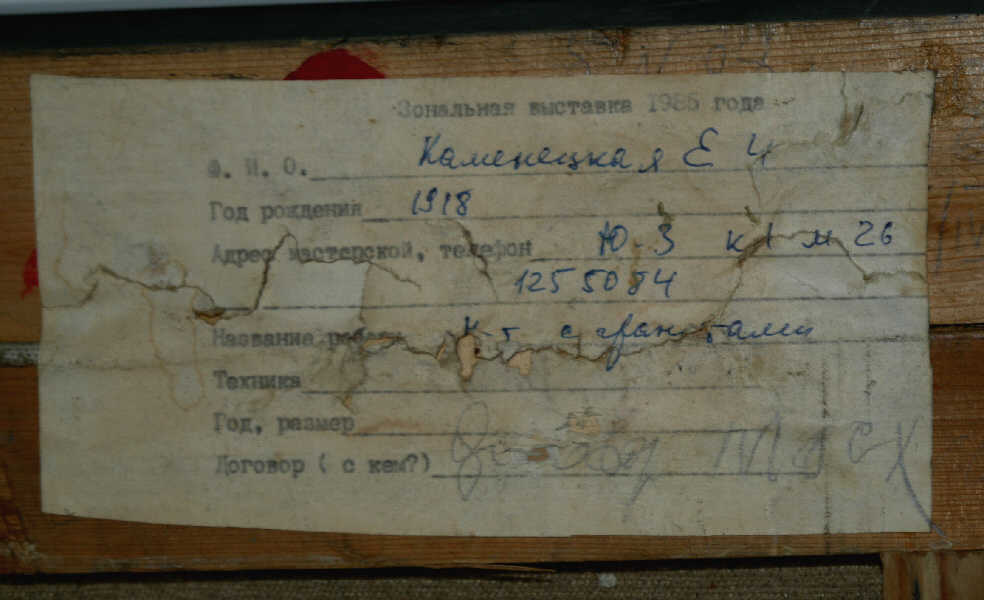 Зональная выставка 1985 года
Ф. И. О. Каменецкая Е Ч
Год рождения 1918
Адрес мастерской, телефон Ю З к 1 м 26
1255084
Название работы с гранатами
Техника
Год, размер
Договор ( с кем?) Договор